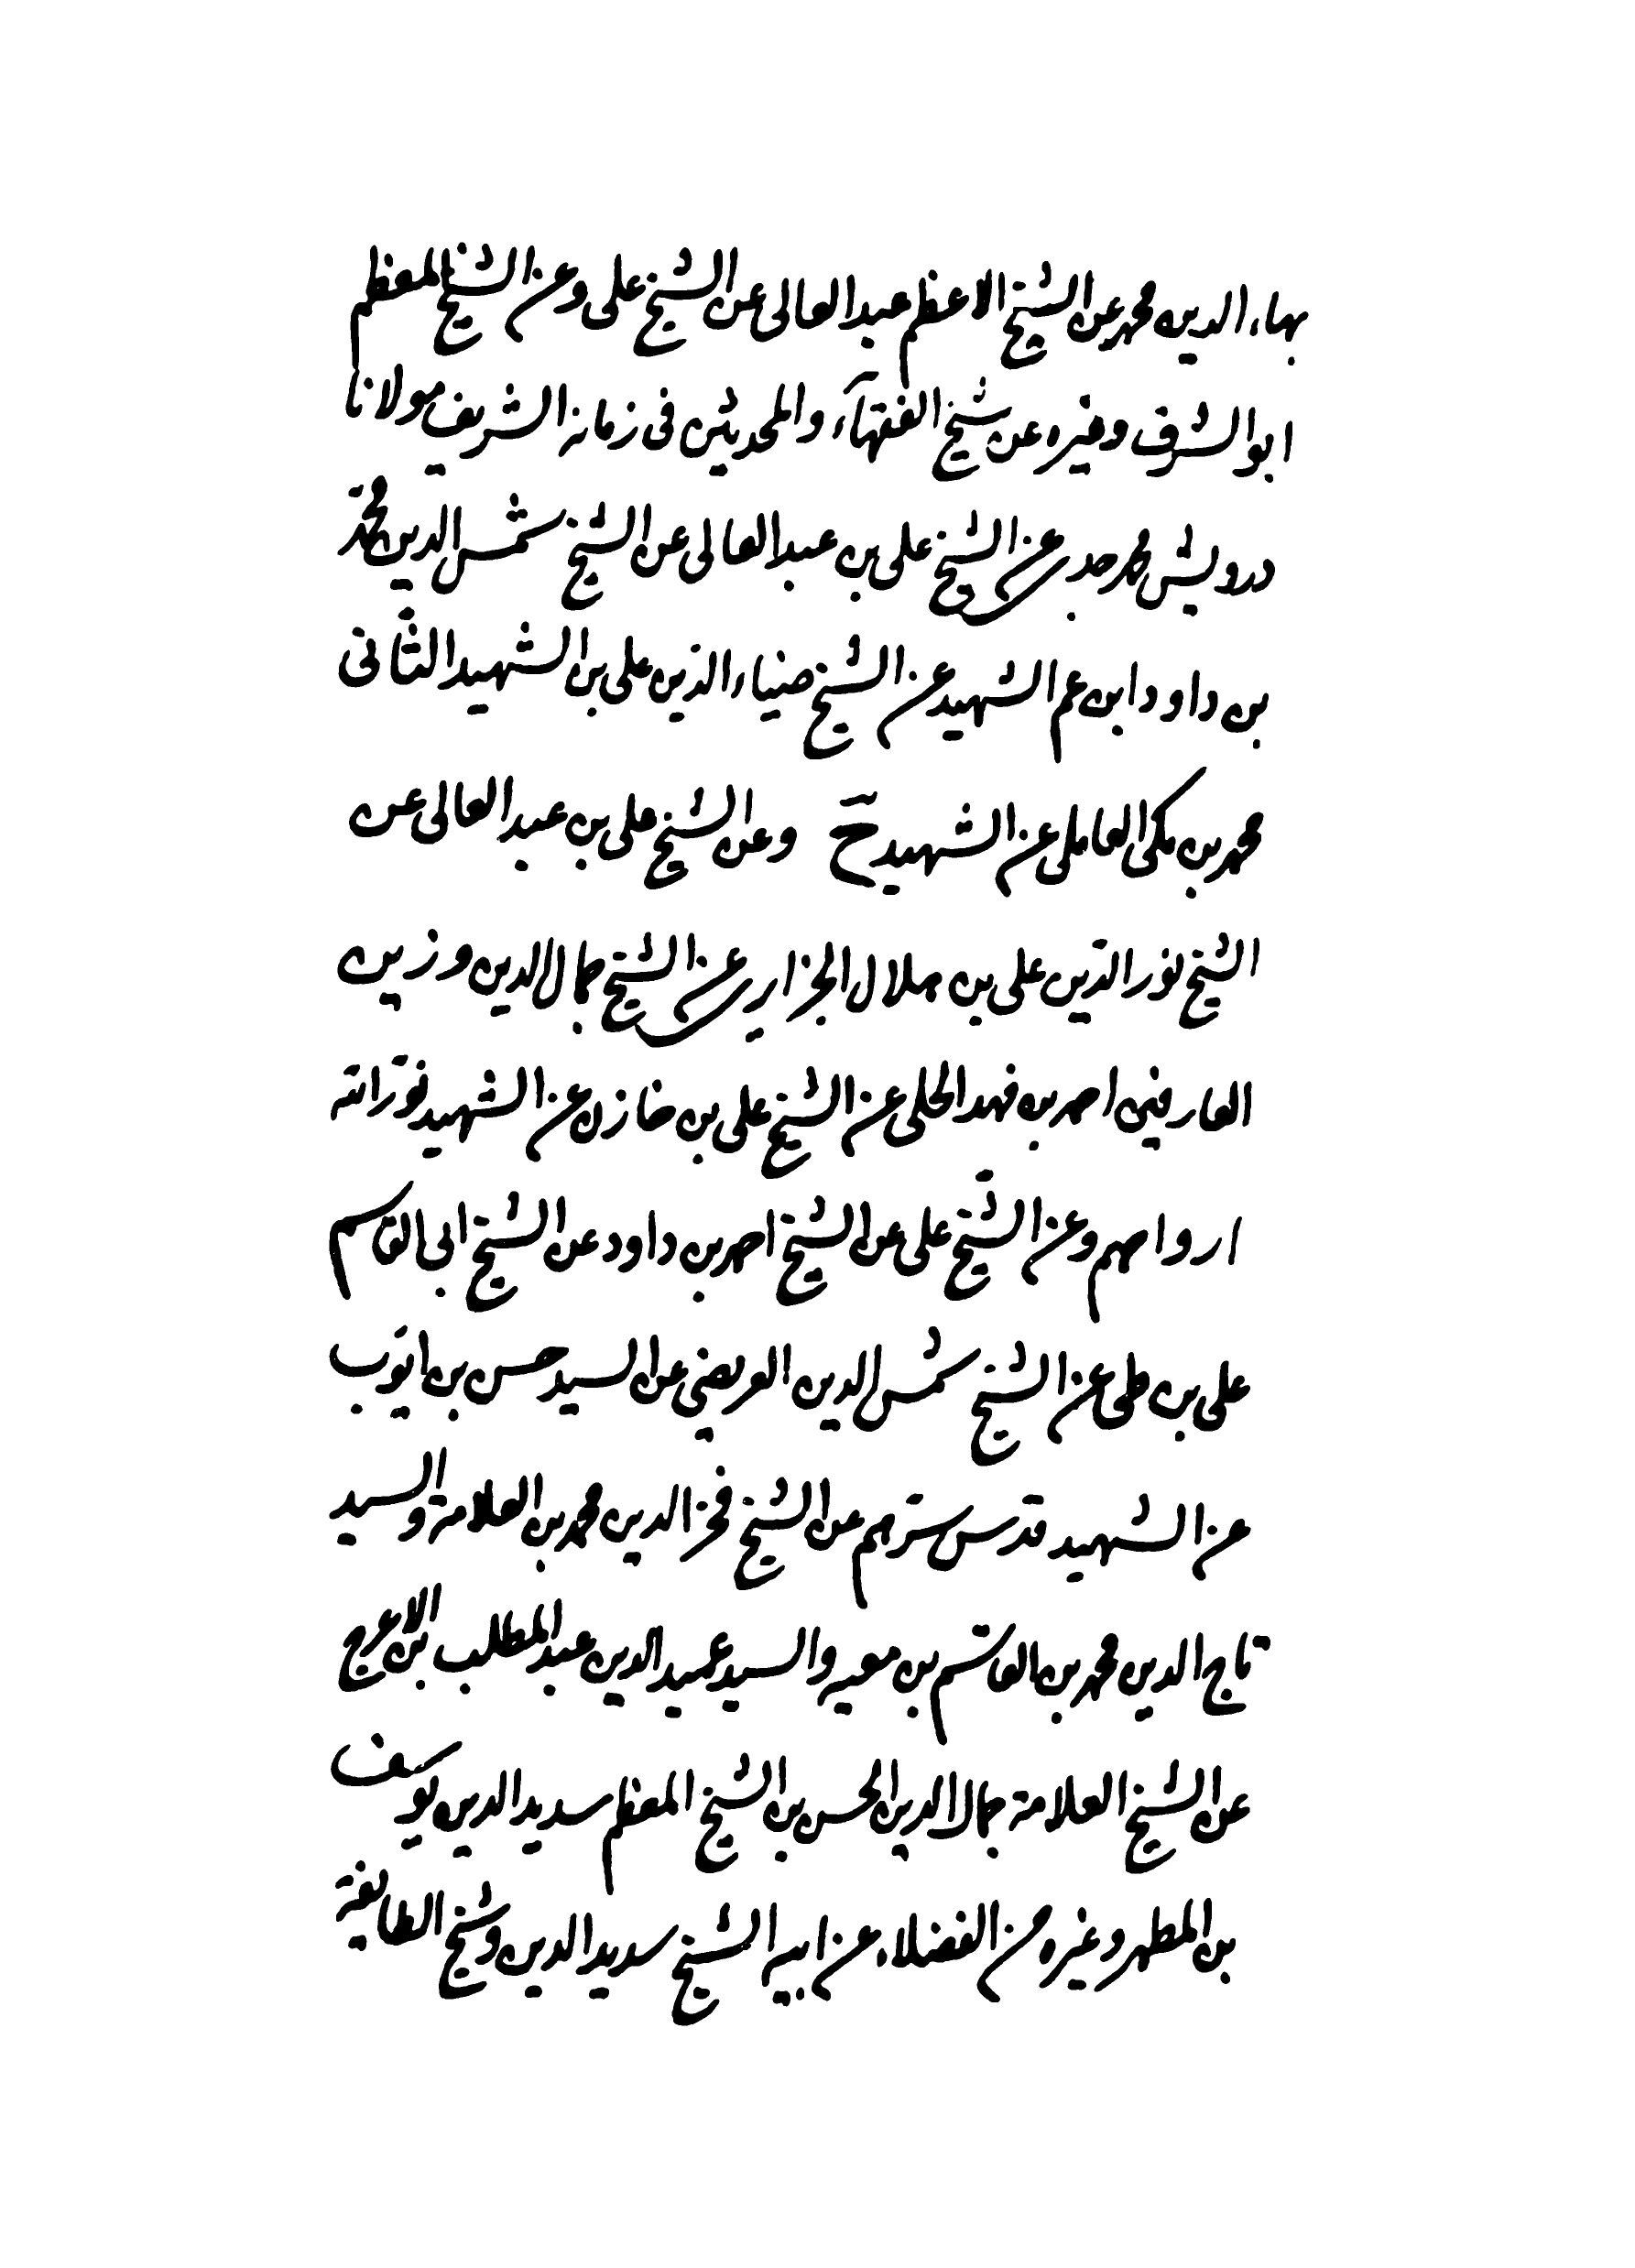 بهاء الدين محمد عن الشيخ الاعظم عبد العالى عن الشيخ على وعن الشيخ المعظم
ابو الشرف وغيره عن شيخ الفقهاء والمحدثين فى زمانه الشريف مولانا
درويش محمد جدي عن الشيخ على بن عبد العالى عن الشيخ شمس الدين محمد
بن داود ابن عم الشهيد عن الشيخ ضياء الدين على بن الشهيد الثانى
محمد بن مكى العاملى عن الشهيد ح وعن الشيخ على بن عبد العالى عن
الشيخ نور الدين على بن هلال الجزايرى عن الشيخ جمال الدين وزين
العارفين احمد بن فهد الحلى عن الشيخ على بن خازن عن الشهيد نور الله
ارواحهم وعن الشيخ على عن الشيخ احمد بن داود عن الشيخ ابى القاسم
على بن طى عن الشيخ شمس الدين العريضى عن السيد حسن بن ايوب
عن الشهيد قدس سرهم عن الشيخ فخر الدين محمد بن العلامة والسيد
تاج الدين محمد بن القاسم بن معيه والسيد عميد الدين عبد المطلب بن الاعرج
عن الشيخ العلامة جمال الدين الحسن بن الشيخ المعظم سديد الدين يوسف
بن المطهر وغيره من الفضلاء عن ابيه الشيخ سديد الدين وشيخ الطايفة